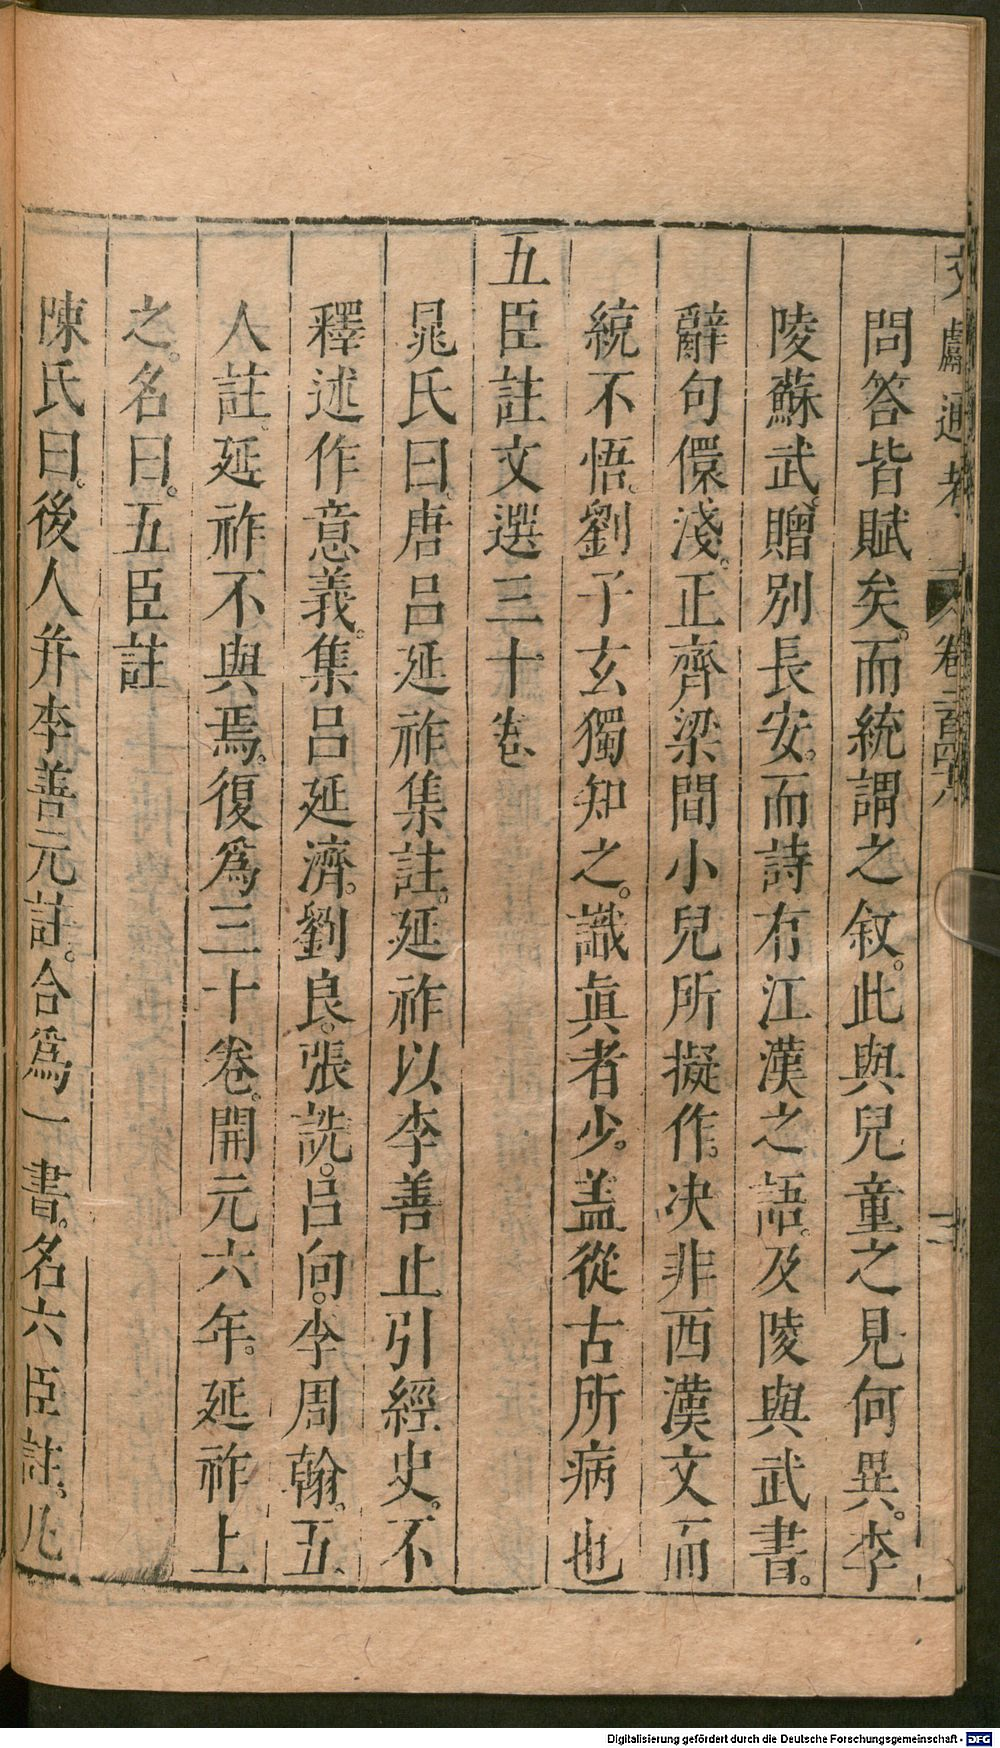 文獻通考 卷二百四十八
問答皆賦矣。而統謂之叙。此與兒童之見何異。李
陵蘇武。贈別長安。而詩有江漢之語。及陵與武書。
辭句儇淺。正齊梁間小兒所擬作。决非西漢文。而
統不悟。劉子玄獨知之。識眞者少。盖從古所病也
五臣註文選三十卷
晁氏曰。唐呂延祚集註。延祚以李善止引經史。不
釋述作意義。集呂延濟。劉良。張詵。呂向。李周翰。五
人註。延祚不與焉。復爲三十卷。開元六年。延祚上
之。名曰。五臣註
陳氏曰。後人并李善元註。合爲一書。名六臣註。凡
Digitalisierung gefördert durch die Deutsche Forschungsgemeinschaft - DFG